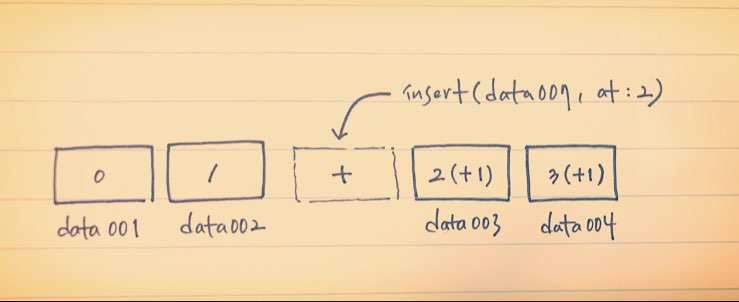 insert(data009, at:2)
0 1 + 2(+1) 3(+1)
data001 data002 data003 data004